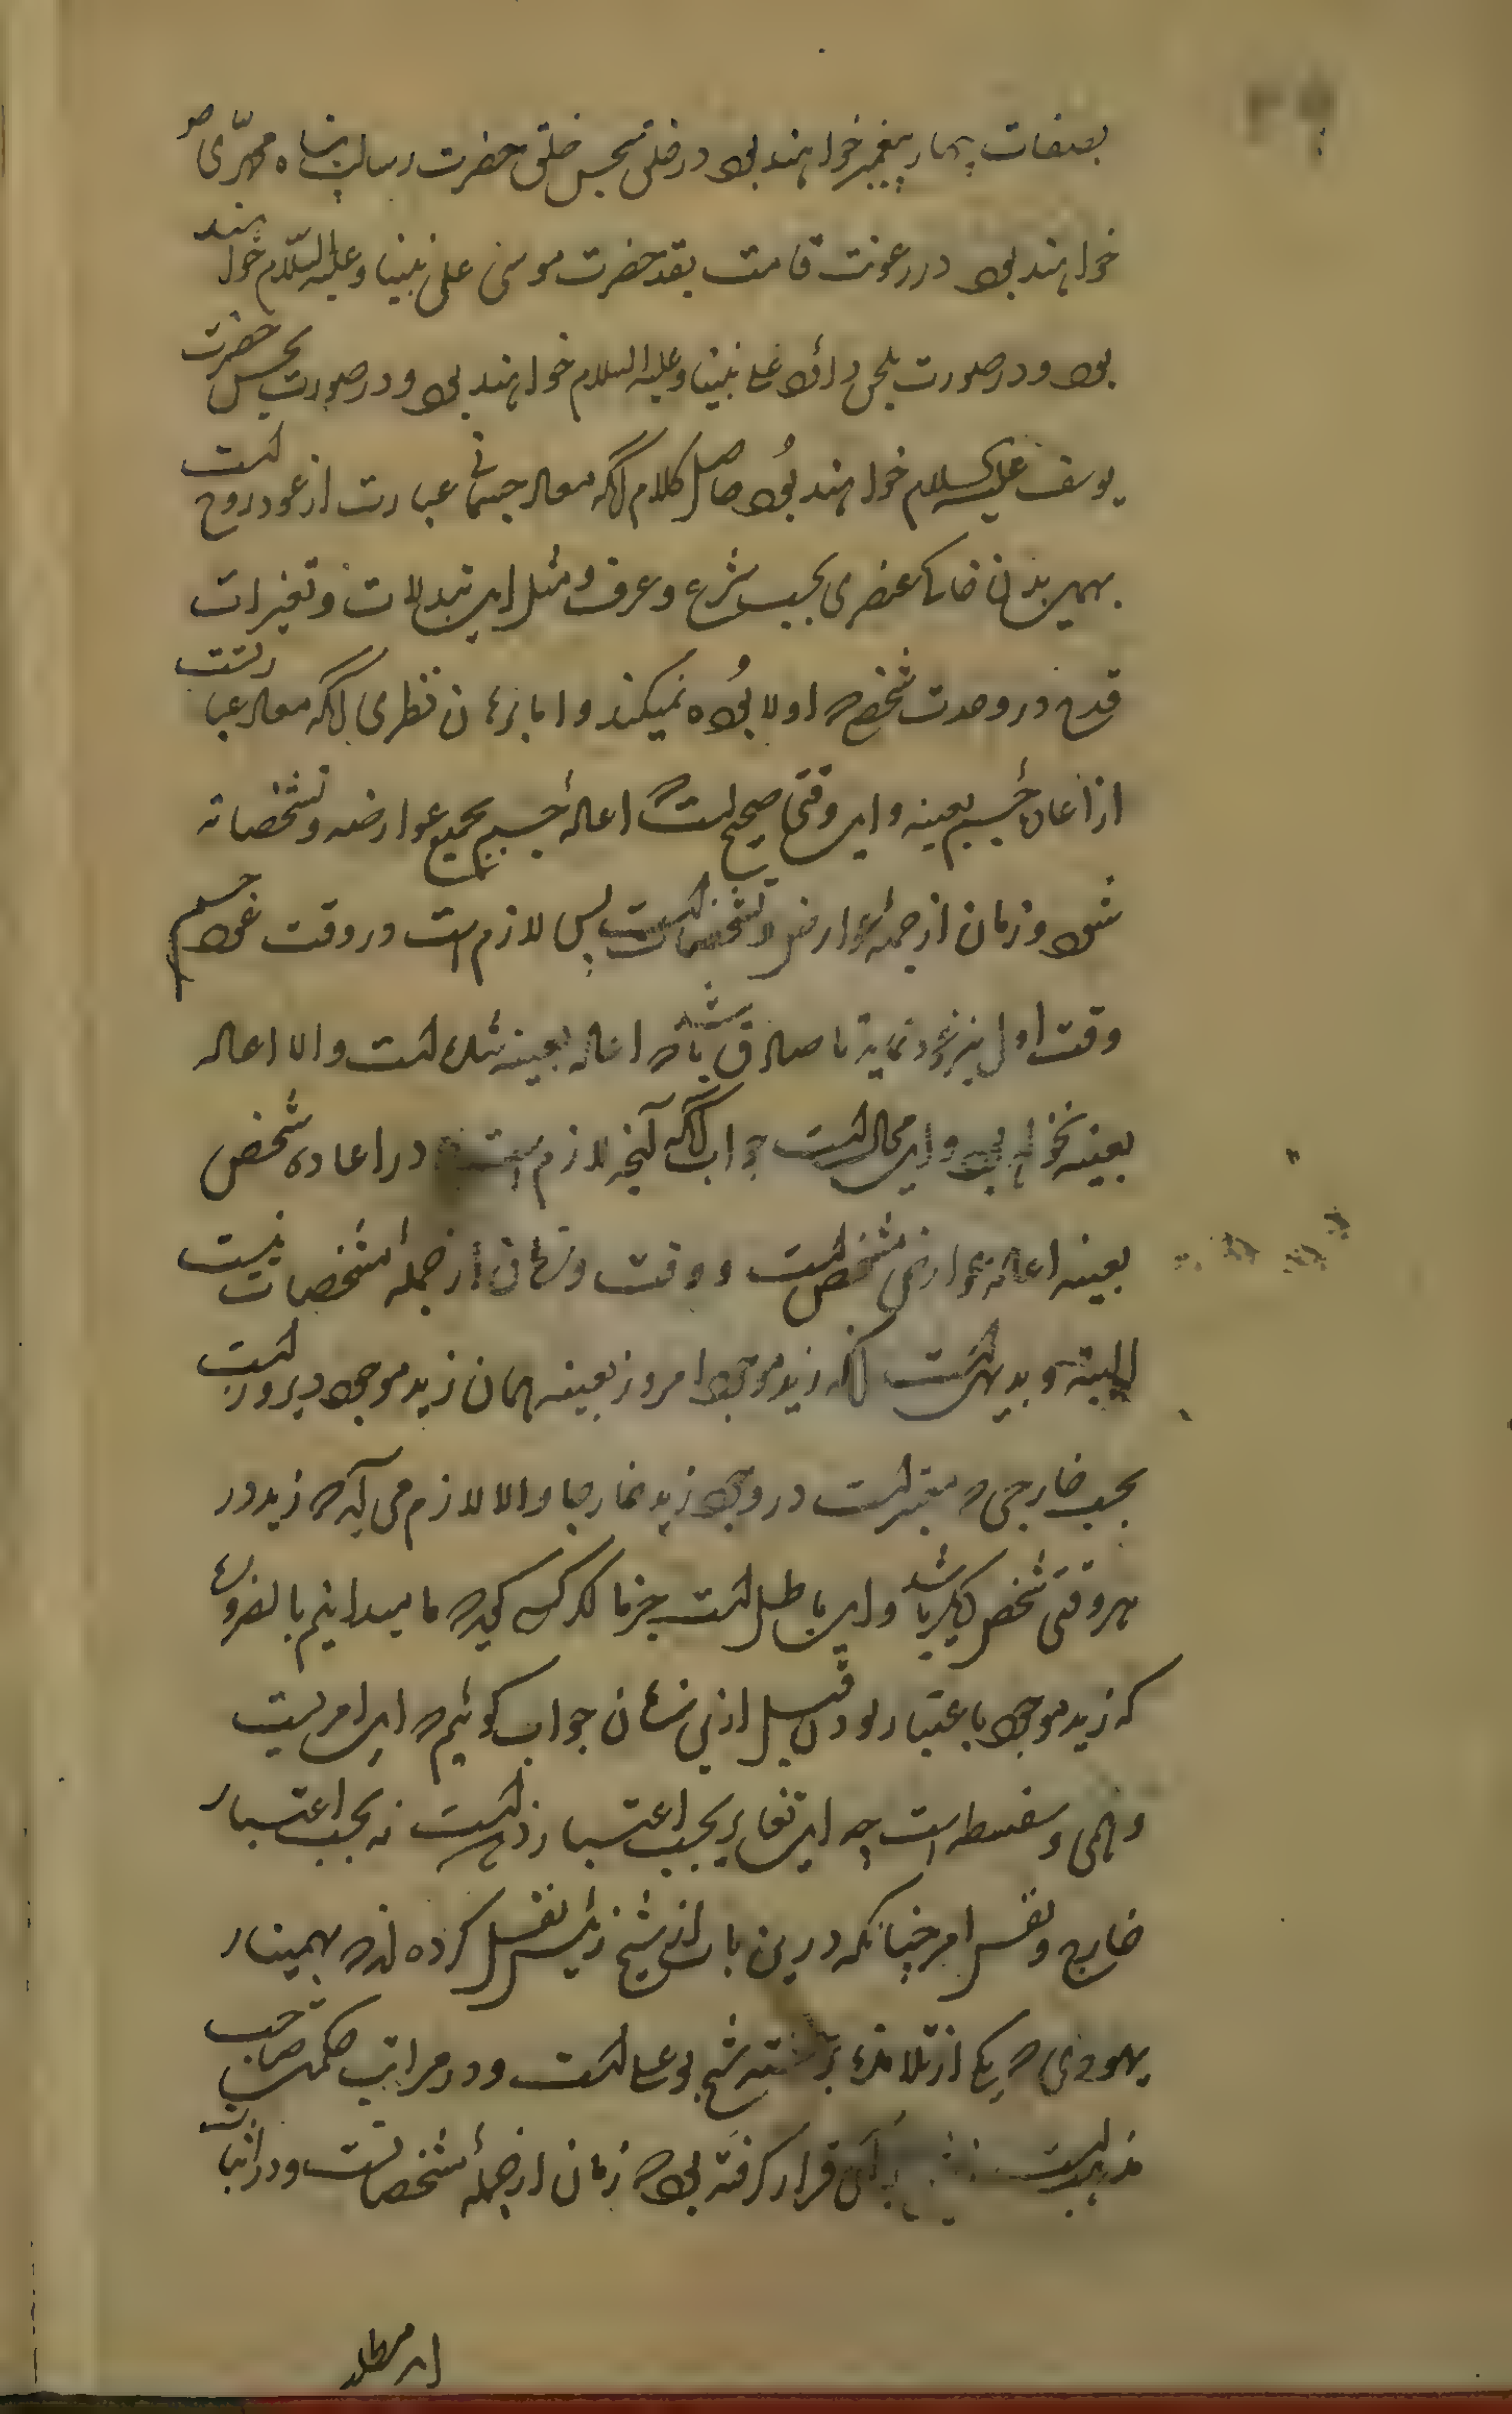 بصفات چهار پیغمبر خواهند بود در خلق بحسن خلق حضرت رسالت پناه محمدی ص
خواهند بود در رعونت قامت بقد حضرت موسی علی نبینا و علیه السلام خواهند
بود و در صورت بلحن داؤد علی نبینا و علیه السلام خواهند بود و در صورت بحسن حضرت
یوسف علیه السلام خواهند بود حاصل کلام آنکه معاد جسمانی عبارت از عود روح است
بهمین بدن خاکی عنصری بحسب شرع و عرف و مثل این تبدلات و تغیرات
قدح در وحدت شخص که اولا بوده نمیکند و اما برهان نظری آنکه معاد عبارتست
از اعاده جسم بعینه و این وقتی صحیح است که اعاده جسم بجمیع عوارضه و تشخصاته
شود و زمان از جمله عوارض و تشخصات است پس لازم است در وقت عود جسم
وقت اول نیز عود نماید تا صادق باشد که اعاده بعینه شده است والا اعاده
بعینه نخواهد بود و این محال است جواب آنکه آنچه لازم است در اعاده شخص
بعینه اعاده عوارض مشخص است و وقت و زمان از جمله مشخصات نیست
البته و بدیهی است آنکه زید موجود امروز بعینه همان زید موجود دیروز است
بحسب خارجی که معتبر است در وجود زید خارجا والا لازم می آید که زید در
هر وقتی شخص دیگر باشد و این باطل است جزما اگر کسی گوید که ما میدانیم بالضروره
که زید موجود باعتبار بودن قبل ازین زمان جواب گوئیم که این امریست
وهمی و سفسطه است چه این تغایر بحسب اعتبار ذهن است نه بحسب اعتبار
خارج و نفس امر چنانکه درین باب از شیخ رئیس نقل کرده اند که بهمنیار
یهودی که یکی از تلامذه شیخ بو علی است و در مراتب حکمت صاحب
مذهب است بر آن قرار گرفته بود که زمان از جمله مشخصات است و در اثبات
این مطلب